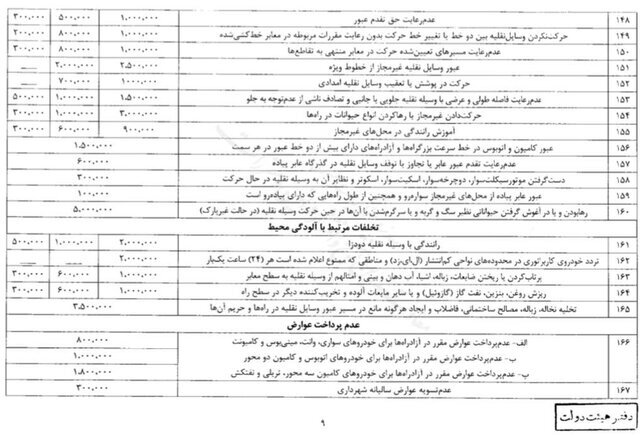 ۱۴۸ عدم‌رعایت حق تقدم عبور ۱.۰۰۰.۰۰۰ ۵۰۰.۰۰۰ ۳۰۰.۰۰۰
۱۴۹ حرکت‌نکردن وسایل‌نقلیه بین دو خط یا تغییر خط حرکت بدون رعایت مقررات مربوطه در معابر خط‌کشی‌شده ۱.۰۰۰.۰۰۰ ۸۰۰.۰۰۰ ۲۰۰.۰۰۰
۱۵۰ عدم‌رعایت مسیرهای تعیین‌شده حرکت در معابر منتهی به تقاطع‌ها ۱.۰۰۰.۰۰۰ ۸۰۰.۰۰۰ ۳۰۰.۰۰۰
۱۵۱ عبور وسایل نقلیه غیرمجاز از خطوط ویژه ۲.۵۰۰.۰۰۰ ۲.۰۰۰.۰۰۰ ـــ
۱۵۲ حرکت در پوشش یا تعقیب وسایل نقلیه امدادی ۱.۰۰۰.۰۰۰ ۷۰۰.۰۰۰ ـــ
۱۵۳ عدم‌رعایت فاصله طولی و عرضی با وسیله نقلیه جلویی یا جانبی و تصادف ناشی از عدم‌توجه به جلو ۱.۵۰۰.۰۰۰ ۱.۰۰۰.۰۰۰ ۵۰۰.۰۰۰
۱۵۴ حرکت‌دادن غیرمجاز یا رهاکردن انواع حیوانات در راه‌ها ۳.۰۰۰.۰۰۰ ۱.۰۰۰.۰۰۰ ۳۰۰.۰۰۰
۱۵۵ آموزش رانندگی در محل‌های غیرمجاز ۹۰۰.۰۰۰ ۶۰۰.۰۰۰ ۳۰۰.۰۰۰
۱۵۶ عبور کامیون و اتوبوس در خط سرعت بزرگراه‌ها و آزادراه‌های دارای بیش از دو خط عبور در هر سمت ۱.۵۰۰.۰۰۰
۱۵۷ عدم‌رعایت تقدم عبور عابر یا تجاوز یا توقف وسایل نقلیه در گذرگاه عابر پیاده ۶۰۰.۰۰۰
۱۵۸ دست‌گرفتن موتورسیکلت‌سوار، دوچرخه‌سوار، اسکیت‌سوار، اسکوتر و نظایر آن به وسیله نقلیه در حال حرکت ۳۰۰.۰۰۰
۱۵۹ عبور عابر پیاده از محل‌های غیرمجاز سواره‌رو و همچنین از طول راه‌هایی که دارای پیاده‌رو است ۱۰۰.۰۰۰
۱۶۰ رهابودن و یا در آغوش گرفتن حیواناتی نظیر سگ و گربه و یا سرگرم‌شدن با آن‌ها در حین حرکت وسیله نقلیه (در حالت غیرپارک) ۵.۰۰۰.۰۰۰
تخلفات مرتبط با آلودگی محیط
۱۶۱ رانندگی با وسیله نقلیه دودزا ۲.۰۰۰.۰۰۰ ۱.۰۰۰.۰۰۰ ۵۰۰.۰۰۰
۱۶۲ تردد خودروی کاربراتوری در محدوده‌های نواحی کم‌انتشار (ال‌ای‌زد) و مناطقی که ممنوع اعلام شده است هر (۲۴) ساعت یک‌بار ۲.۰۰۰.۰۰۰ ـــ ـــ
۱۶۳ پرتاب‌کردن یا ریختن ضایعات، زباله، اشیا، آب دهان و بینی و امثالهم از وسیله نقلیه به سطح معابر ۱.۰۰۰.۰۰۰ ۶۰۰.۰۰۰ ۳۰۰.۰۰۰
۱۶۴ ریزش روغن، بنزین، نفت گاز (گازوئیل) و یا سایر مایعات آلوده و تخریب‌کننده دیگر در سطح راه ۱.۰۰۰.۰۰۰ ۶۰۰.۰۰۰ ۳۰۰.۰۰۰
۱۶۵ تخلیه نخاله، زباله، مصالح ساختمانی، فاضلاب و ایجاد هرگونه مانع در مسیر عبور وسایل نقلیه در راه‌ها و حریم آن‌ها ۳.۵۰۰.۰۰۰
عدم پرداخت عوارض
۱۶۶ الف- عدم‌پرداخت عوارض مقرر در آزادراه‌ها برای خودروهای سواری، وانت، مینی‌بوس و کامیونت ۸۰۰.۰۰۰
ب- عدم‌پرداخت عوارض مقرر در آزادراه‌ها برای خودروهای اتوبوس و کامیون دو محور ۱.۰۰۰.۰۰۰
پ- عدم‌پرداخت عوارض مقرر در آزادراه‌ها برای خودروهای کامیون سه محور، تریلی و نفتکش ۱.۸۰۰.۰۰۰
۱۶۷ عدم‌تسویه عوارض سالیانه شهرداری ۳۰۰.۰۰۰
۹
دفتر هیئت دولت